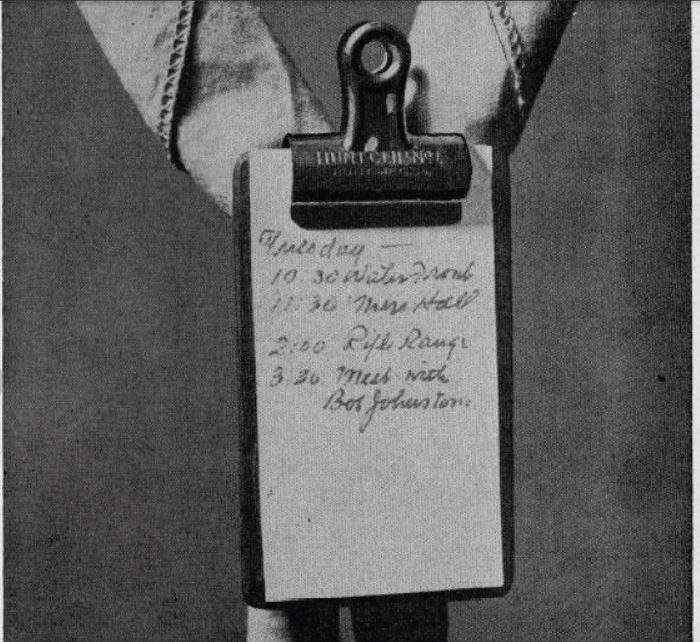 Tuesday —
10 30 Water Front
11:30 Mess Hall
2:00 Rifle Range
3 30 Meet with
Bob Johnston.